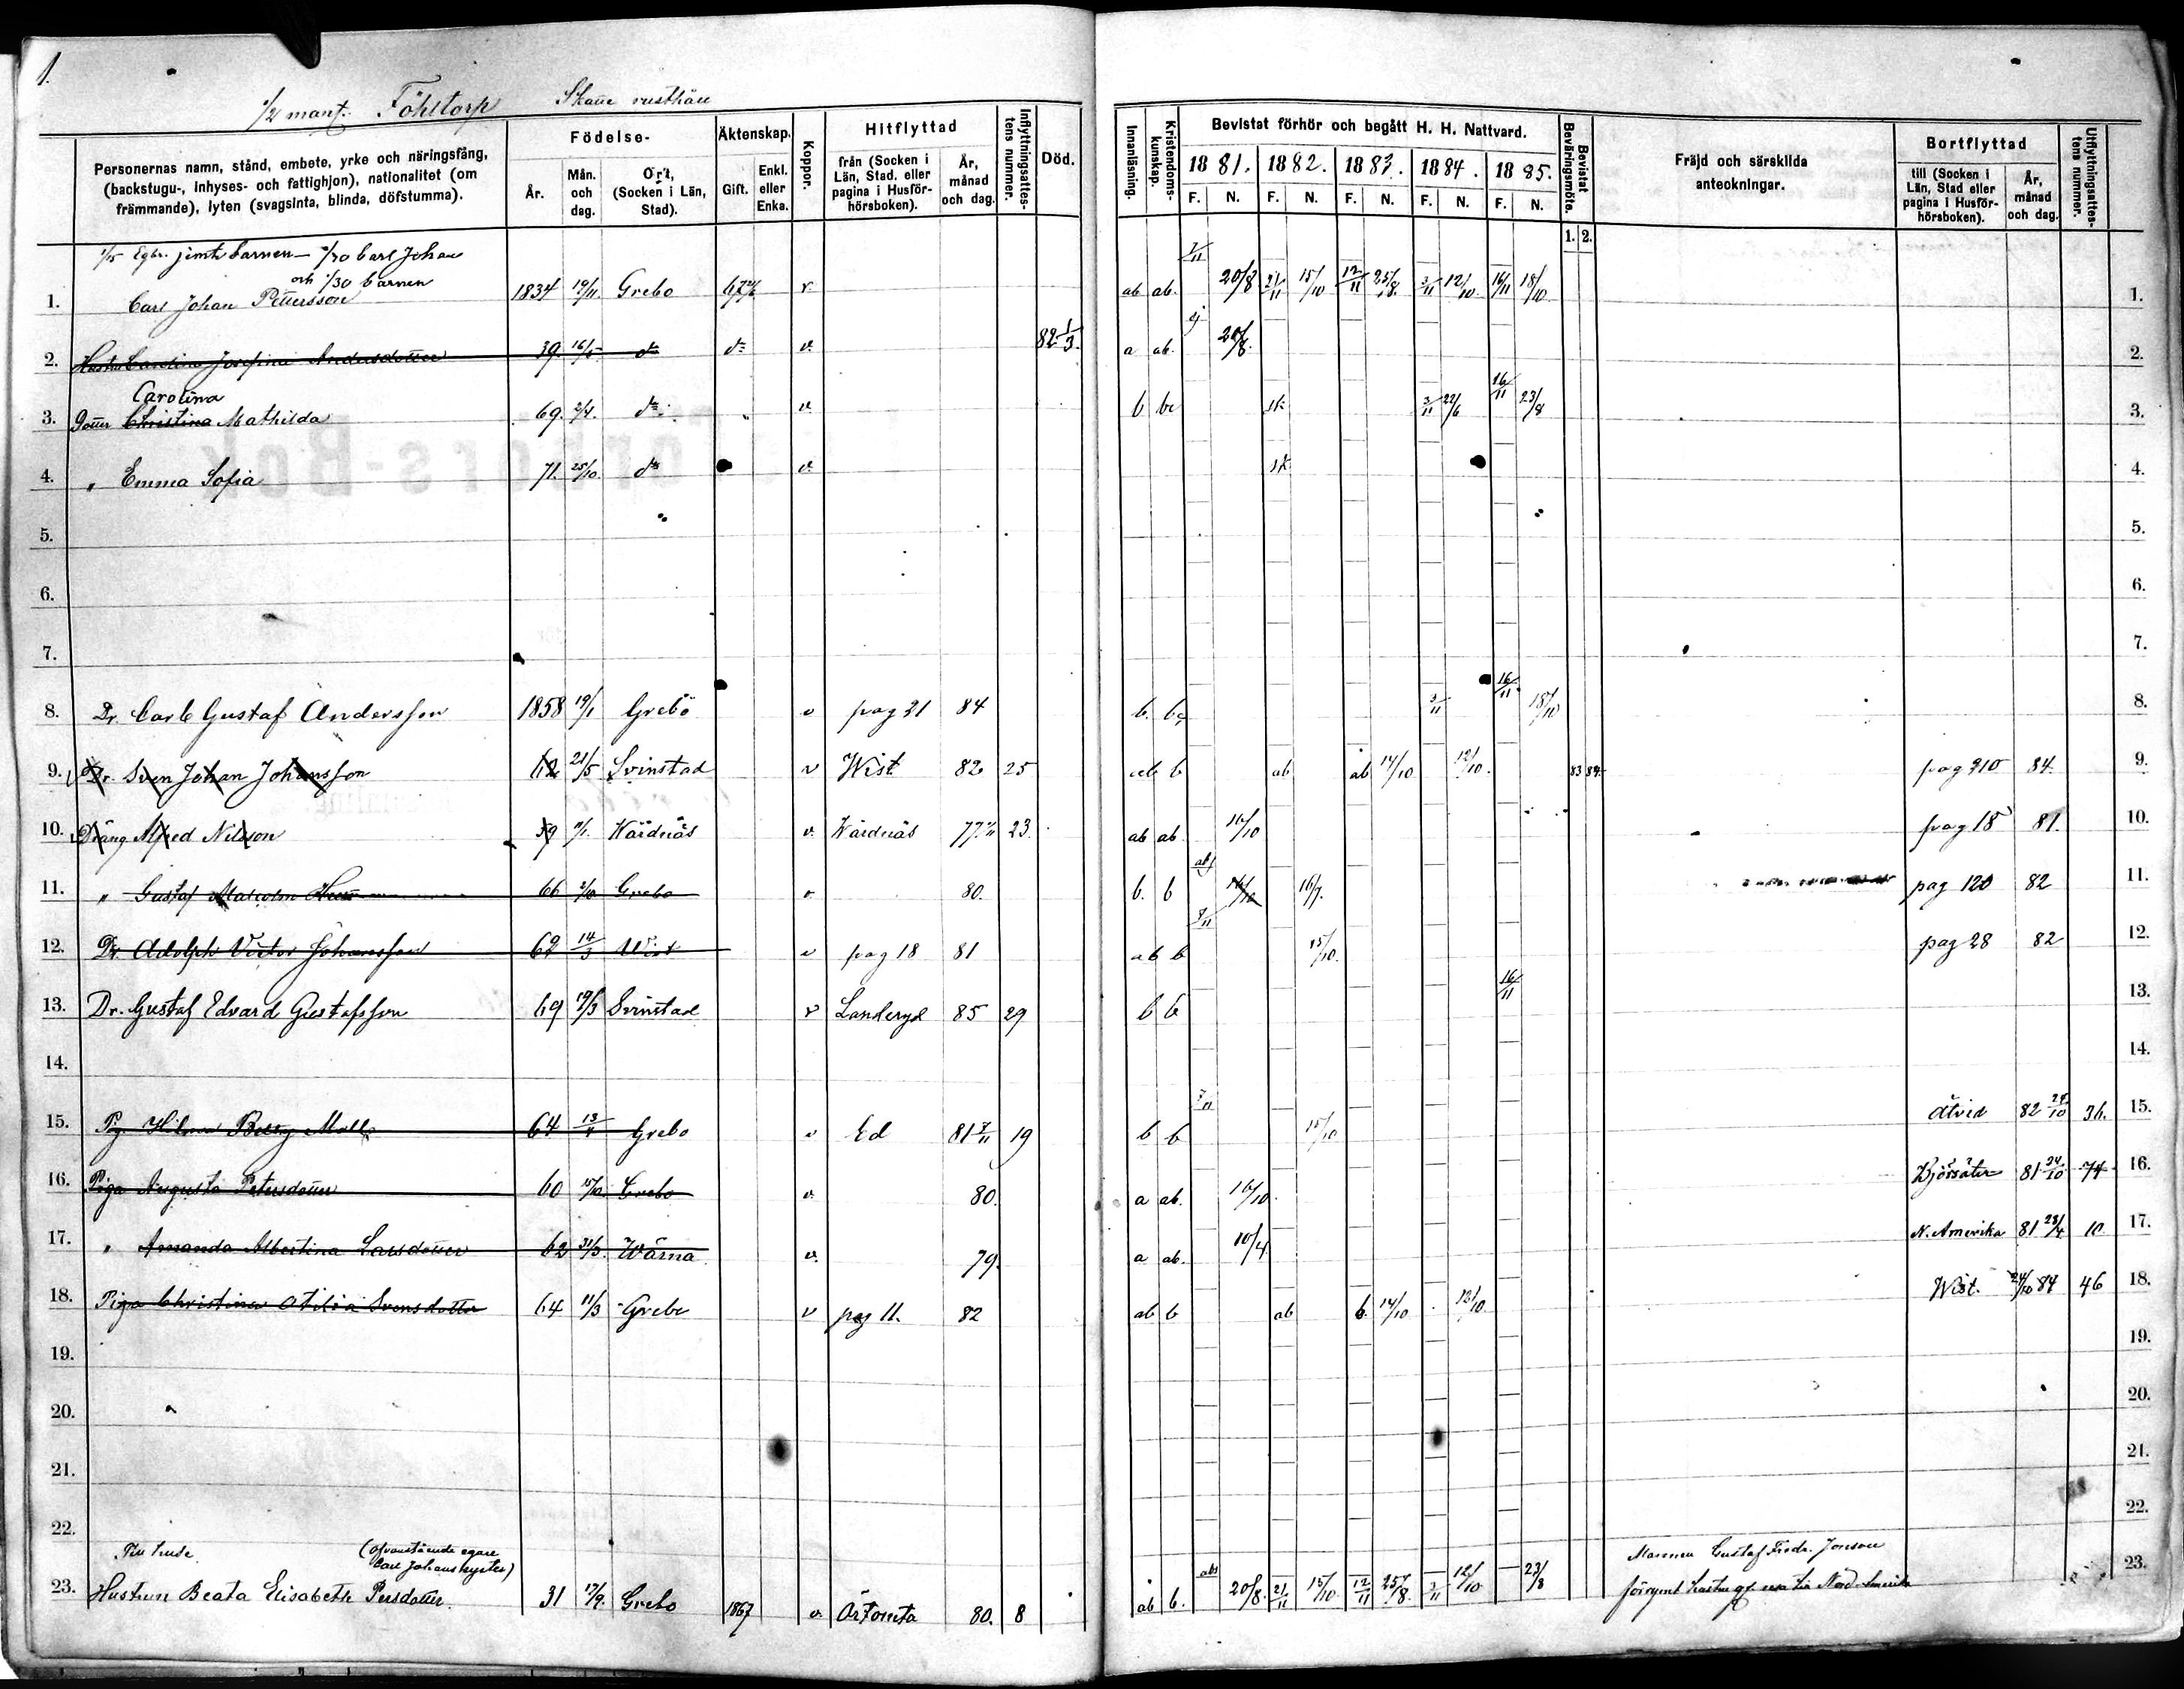 1.
1/2 mant. Föhltorp Skatte rusthåll
Personernas namn, stånd, embete, yrke och näringsfång, (backstugu-, inhyses- och fattighjon), nationalitet (om främmande), lyten (svagsinta, blinda, döfstumma).
Födelse-
År. Mån. och dag. Ort, (Socken i Län, Stad).
Äktenskap.
Gift. Enkl. eller Enka.
Koppor.
Hitflyttad
från (Socken i Län, Stad. eller pagina i Husförhörsboken). År, månad och dag.
Inflyttningsattestens nummer.
Död.
Innanläsning.
Kristendomskunskap.
Bevistat förhör och begått H. H. Nattvard.
1881. 1882. 1883. 1884. 1885.
F. N. F. N. F. N. F. N. F. N.
Bevistat Beväringsmöte.
1. 2.
Fräjd och särskilda anteckningar.
Bortflyttad
till (Socken i Län, Stad eller pagina i Husförhörsboken). År, månad och dag.
Utflyttningsattestens nummer.
barnen Carl Johan
och 1/30 barnen
1. Carl Johan Pettersson 1834 19/11 Grebo v ab ab. 7/11 20/8 21/11 15/10 12/11 25/8. 3/11 12/10 16/11 18/10 1.
2. Hustru Carolina Josefina Andersdotter 39 d:o d:o v. 82 1/3. a ab. 20/8. 2.
Carolina
3. Dotter Christina Mathilda 69. 2/4. d:o v. b bc 3/11 22/6 16/11 23/8 3.
4. " Emma Sofia 71. 25/10 d:o v. 4.
5. 5.
6. 6.
7. 7.
8. Dr Carl Gustaf Andersson 1858 19/1 Grebo v pag 21 84 b. 3/11 16/11 18/10 8.
9. Dr. Sven Johan Johansson 62 21/5 Svinstad v Wist 82 25 ab b ab ab 14/10 12/10. 83 84 pag 210 84. 9.
10. Dräng Alfred Nilsson 59 Wårdnäs v. Wårdnäs 77 23. ab ab 16/10 pag 18 81. 10.
11. " Gustaf Malcolm 66 Grebo v. 80. b. b 16/10 16/7. pag 120 82 11.
12. Dr Adolph Victor Johansson 62 14/3 Wist v pag 18 81 ab b 7/11 15/10. pag 28 82 12.
13. Dr. Gustaf Edvard Gustafsson 69 19/3 Svinstad v Landeryd 85 29 b b 16/11 13.
14. 14.
15. Pig. Hilma Betty Moll 64 Grebo v Ed 81 7/11 19 b b 7/11 15/10 Åtvid 82 24/10 36. 15.
16. Piga Augusta Petersdotter 60 Grebo v. 80. a ab. 16/10. Björsäter 81 24/10 74 16.
17. " Amanda Albertina Larsdotter 62 31/3. Wärna v. 79. a ab. 10/4. N. Amerika 81 28/4 10 17.
18. Piga Christina Otilia Svensdotter 64 11/3 Grebo v pag 11. 82 ab b ab b. 14/10 12/10. Wist. 24/10 84 46 18.
19. 19.
20. 20.
21. 21.
22. 22.
(Ofvanstående egare Carl Johans syster)
23. Hustrun Beata Elisabeth Persdotter. 31 17/9. Grebo 1867 v. Örtomta 80. 8 ab b. 20/8. 21/11 15/10. 12/11 25/8. 3/11 12/10 23/8 23.
Mannen Gustaf Fredr. Jonson
förrymt Nord Amerika